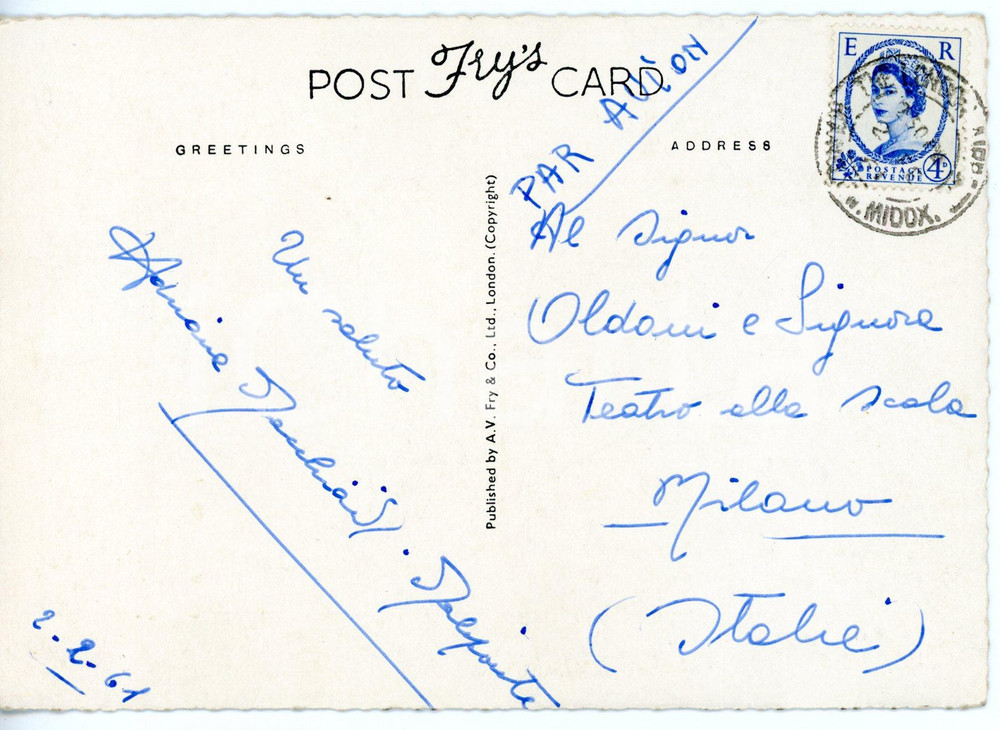 POST Fry's CARD
PAR AVION
GREETINGS
ADDRESS
E R
POSTAGE
REVENUE
4D
MIDDX.
Un saluto
Adriana
2-2-61
Published by A.V. Fry & Co., Ltd., London. (Copyright)
Al Signor
Oldani e Signora
Teatro alla Scala
Milano
(Italie)